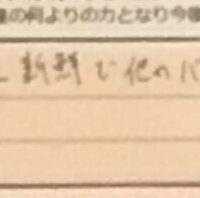 の何よりの力となり今後
新鮮で他のバ